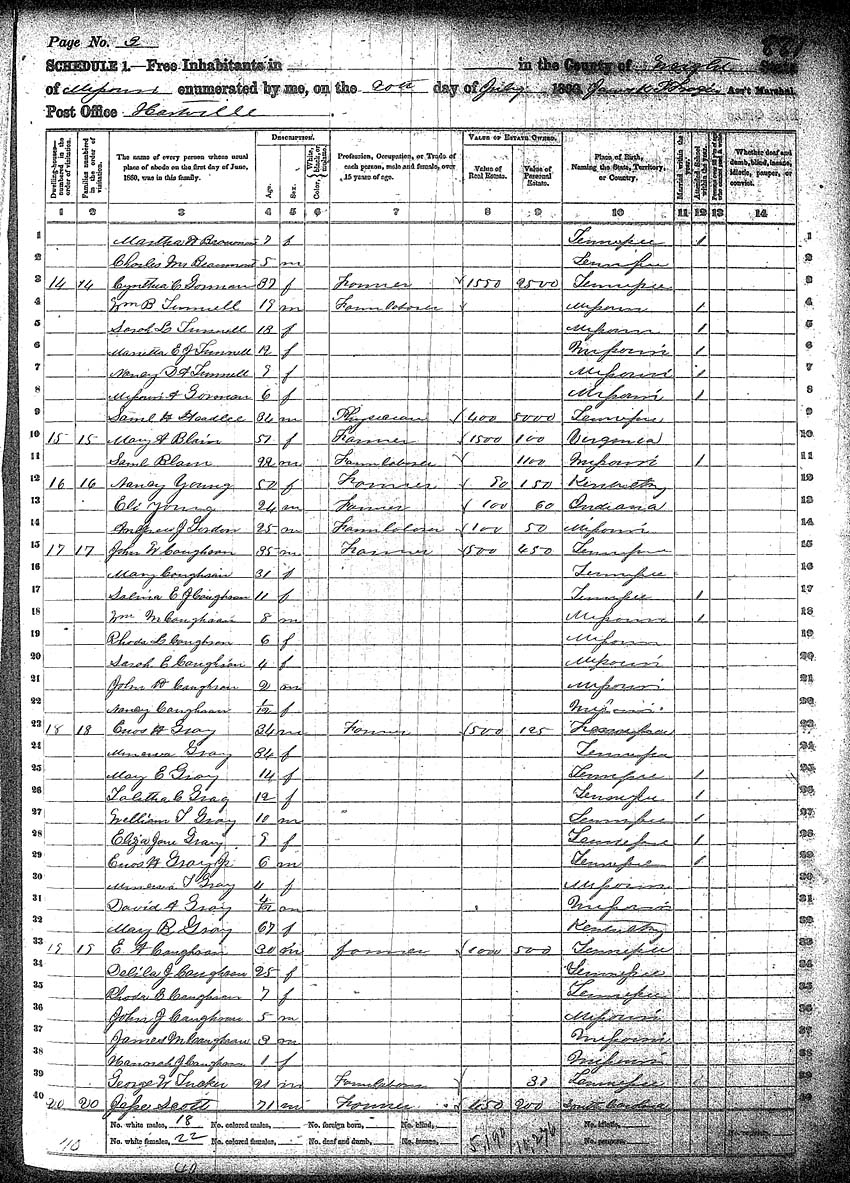 Page No. 2
SCHEDULE 1.—Free Inhabitants in in the County of Wright State
of Missouri enumerated by me, on the 20th day of July 1860. Ass't Marshal.
Post Office Hartville
Dwelling-houses—numbered in the order of visitation.
Families numbered in the order of visitation.
The name of every person whose usual place of abode on the first day of June, 1860, was in this family.
DESCRIPTION.
Age.
Sex.
Color, { White, black, or mulatto.
Profession, Occupation, or Trade of each person, male and female, over 15 years of age.
VALUE OF ESTATE OWNED.
Value of Real Estate.
Value of Personal Estate.
Place of Birth, Naming the State, Territory, or Country.
Married within the year.
Attended School within the year.
Whether deaf and dumb, blind, insane, idiotic, pauper, or convict.
1 2 3 4 5 6 7 8 9 10 11 12 13 14
1 Martha 7 f Tennessee 1 1
2 Charles 5 m Tennessee 2
3 14 14 Cynthia C Gorman 37 f Farmer 1550 2500 Tennessee 3
4 Wm B Tunnell 19 m Farm laborer Missouri 1 4
5 Sarah L Tunnell 18 f Missouri 1 5
6 Marietta E J Tunnell 12 f Missouri 1 6
7 Nancy Tunnell 9 f Missouri 1 7
8 Missouri A Gorman 6 f Missouri 1 8
9 Saml H Headlee 34 m Physician 400 5000 Tennessee 9
10 15 15 Mary A Blain 51 f Farmer 1500 100 Virginia 10
11 Saml Blain 22 m Farm laborer 1100 Missouri 1 11
12 16 16 Nancy Young 50 f Farmer 80 150 Kentucky 12
13 Eli Young 24 m Farmer 100 60 Indiana 13
14 Andrew J Gordon 25 m Farm laborer 100 50 Missouri 14
15 17 17 John W Caughron 35 m Farmer 500 450 Tennessee 15
16 Mary Caughron 31 f Tennessee 16
17 Salina E J Caughron 11 f Tennessee 1 17
18 Wm M Caughron 8 m Missouri 1 18
19 Rhoda L Caughron 6 f Missouri 19
20 Sarah E Caughron 4 f Missouri 20
21 John Caughron 2 m Missouri 21
22 Nancy Caughron f Missouri 22
23 18 18 Enos H Gray 34 m Farmer 500 125 Tennessee 23
24 Minerva Gray 34 f Tennessee 24
25 Mary E Gray 14 f Tennessee 1 25
26 Talitha C Gray 12 f Tennessee 1 26
27 William T Gray 10 m Tennessee 1 27
28 Eliza Jane Gray 9 f Tennessee 1 28
29 Enos H Gray Jr 6 m Tennessee 1 29
30 Minerva T Gray 4 f Missouri 30
31 David A Gray 4/12 m Missouri 31
32 Mary B Gray 67 f Kentucky 32
33 19 19 E A Caughron 30 m farmer 1000 500 Tennessee 33
34 Delila J Caughron 25 f Tennessee 34
35 Rhoda E Caughron 7 f Tennessee 35
36 John J Caughron 5 m Missouri 36
37 James M Caughron 3 m Missouri 37
38 Hannah J Caughron 1 f Missouri 38
39 George W Tucker 21 m Farm laborer Tennessee 39
40 20 20 Jesse Scott 71 m Farmer 450 200 South Carolina
No. white males, 18 No. colored males, No. foreign born, No. blind, No. idiotic,
No. white females, 22 No. colored females, No. deaf and dumb, No. insane, No. paupers,
40
5,190
40